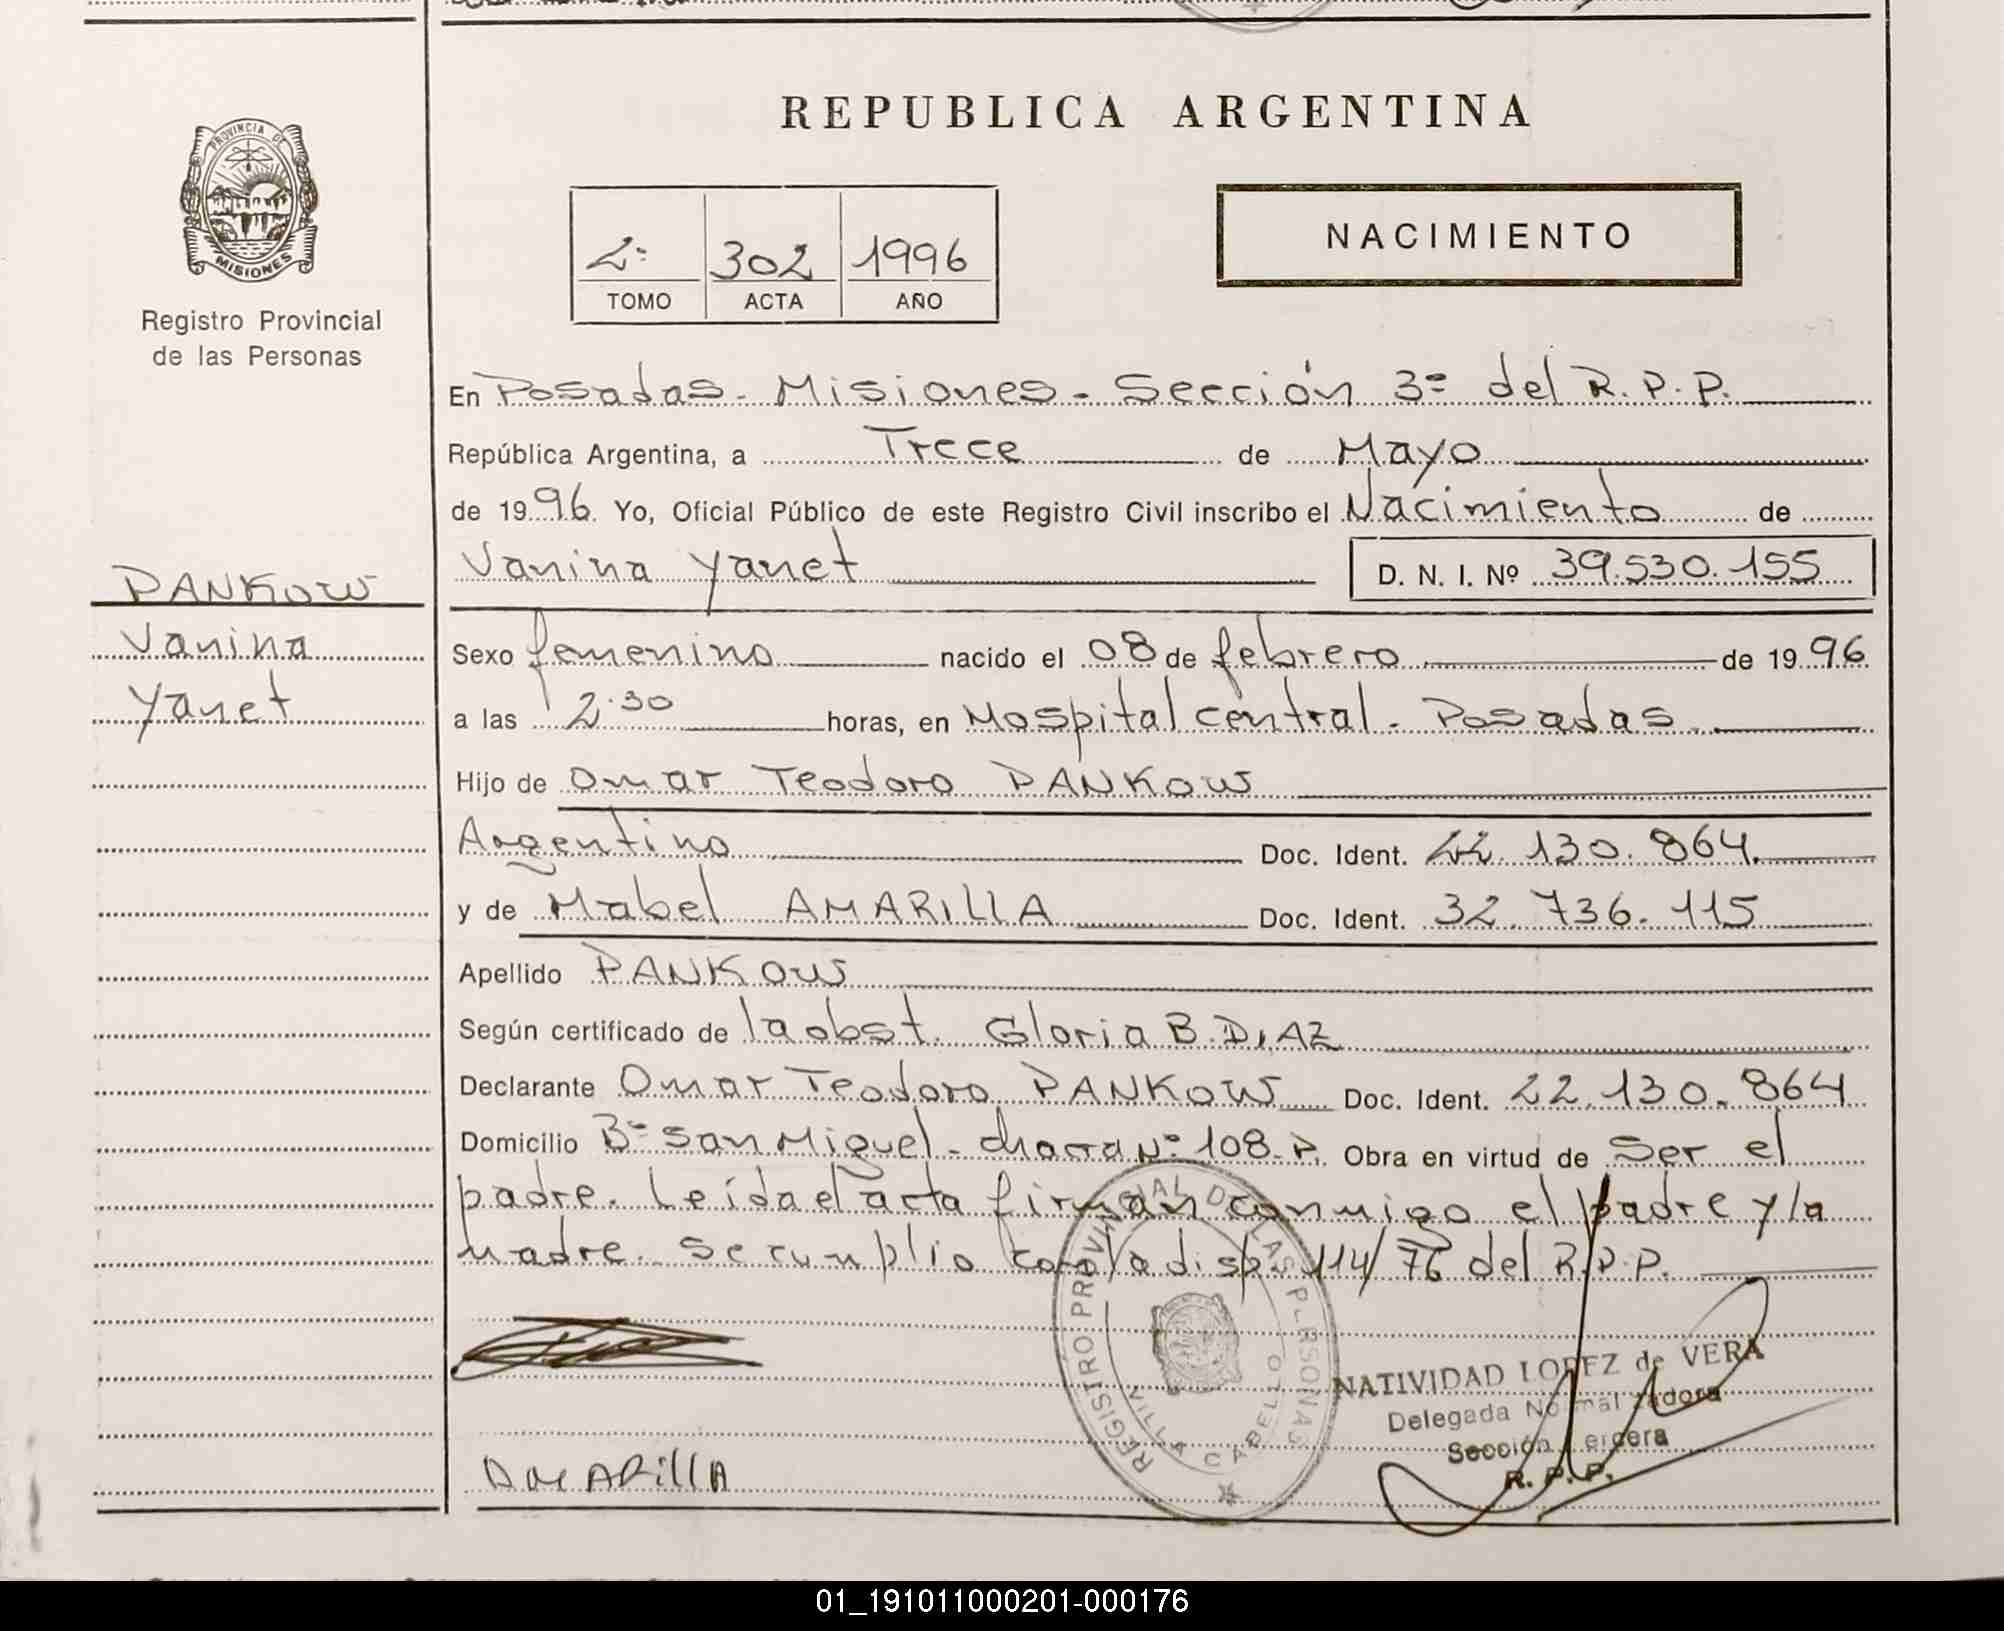 REPUBLICA ARGENTINA
PROVINCIA DE
MISIONES
Registro Provincial
de las Personas
2º 302 1996
TOMO ACTA AÑO
NACIMIENTO
En Posadas - Misiones - Sección 3ª del R.P.P.
República Argentina, a Trece de Mayo
de 1996 Yo, Oficial Público de este Registro Civil inscribo el Nacimiento de
Vanina Yanet D. N. I. Nº 39.530.155
PANKOW
Vanina
Yanet
Sexo femenino nacido el 08 de febrero de 1996
a las 2.30 horas, en Hospital central - Posadas
Hijo de Omar Teodoro PANKOW
Argentino Doc. Ident. 22.130.864
y de Mabel AMARILLA Doc. Ident. 32.736.115
Apellido PANKOW
Según certificado de la obst. Gloria B. DIAZ
Declarante Omar Teodoro PANKOW Doc. Ident. 22.130.864
Domicilio Bº San Miguel - chacra Nº 108-P. Obra en virtud de Ser el
padre. Leída el acta firman conmigo el padre y la
madre. Se cumplio con la disp. 114/76 del R.P.P.
REGISTRO PROVINCIAL DE LAS PERSONAS
VILLA CABELLO
NATIVIDAD LOPEZ de VERA
Delegada Normalizadora
Sección Tercera
R. P. P.
AMARillA
01_191011000201-000176